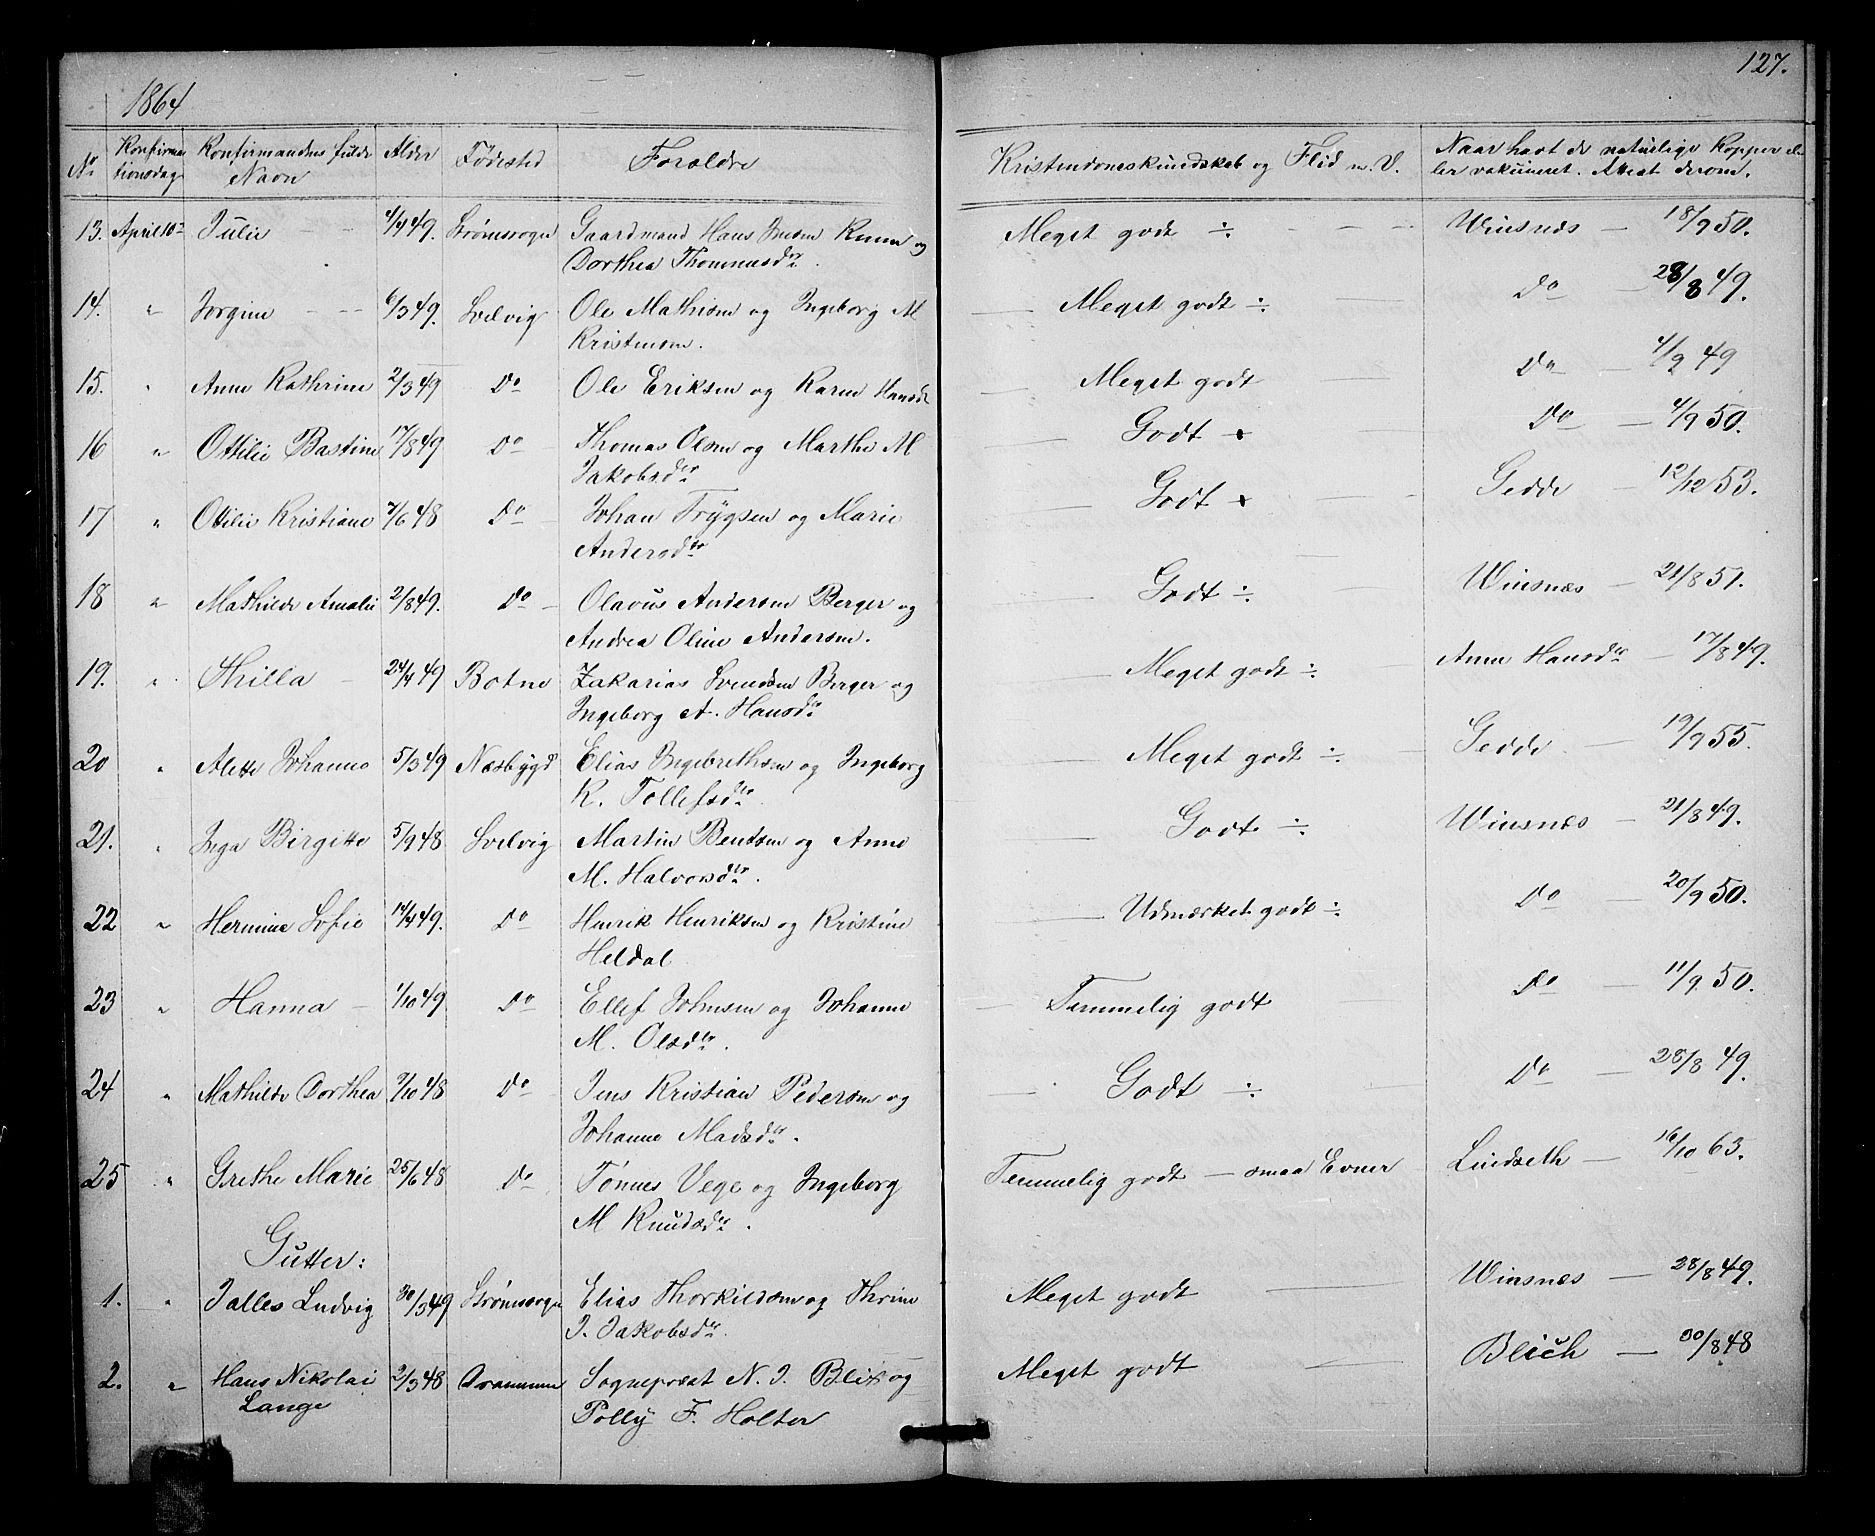 127.
1864
No Konfirmationsdag Konfirmandens fulde Navn Alder Fødested Forældre Kristendomskundskab og Flid m. V. Naar havt de naturlige Kopper eller vakcineret. Attest derom.
13. April 10de Julie 4/4 49. Strømsogn Gaardmand Hans Jensen og Meget godt ÷ Winsnæs — 18/9 50.
Dorthea Thommesdtr.
14. " Jorgine 6/3 49. Svelvig Ole Mathisen og Ingeborg M Meget godt ÷ Do — 28/8 49.
Kristensen.
15. " Anne Kathrine 2/3 49 Do Ole Eriksen og Karen Hansdr Meget godt Do — 4/9 49
16 " Ottilie Bastine 17/8 49 Do Thomas Olsen og Marthe M Godt × Do — 4/9 50.
Jakobsdtr
17 " Ottilie Kristiane 7/6 48 Do Johan Trygsen og Marie Godt × Gedde — 12/12 53.
Andersdtr
18 " Mathilde Amalie 2/8 49. Do Olavus Andersen Berger og Godt ÷ Winsnæs — 21/8 51.
Andrea Oline Andersen.
19. " Thilla 24/4 49 Botne Zakarias Svendsen Berger og Meget godt ÷ Anne Hansdtr — 17/8 49.
Ingeborg A. Hansdtr
20 " Alette Johanne 5/3 49 Næsbygd Elias Ingebrethsen og Ingeborg Meget godt ÷ Gedde — 19/9 55.
K. Tollefsdtr
21. " Inga Birgitte 5/9 48 Svelvig Martin Bentsen og Anne Godt ÷ Winsnæs — 21/8 49.
M. Halvorsdtr.
22 " Hermine Sofie 14/4 49. Do Henrik Henriksen og Kristine Udmærket godt ÷ Do — 20/9 50.
Heldal
23 " Hanna — 1/10 49 Do Ellef Johnsen og Johanne Temmelig godt Do — 11/9 50.
M. Olsdtr.
24 " Mathilde Dorthea 9/10 48 Do Jens Kristian Pedersen og Godt ÷ Do — 28/8 49.
Johanne Madsdtr.
25 " Grethe Marie 25/6 48 Do Tønnes Vege og Ingeborg Temmelig godt — smaa Evner Lindseth — 16/10 63.
M Knudsdtr.
Gutter:
1. " Jalles Ludvig 30/3 49 Strømsogn Elias Thorkildsen og Thrine Meget godt Winsnæs — 28/8 49.
J. Jakobsdtr.
2. " Hans Nikolai 2/3 48 Drammen Sognepræst N. J. Blix og Meget godt Blich — 30/8 48
Lange Polly F. Holter